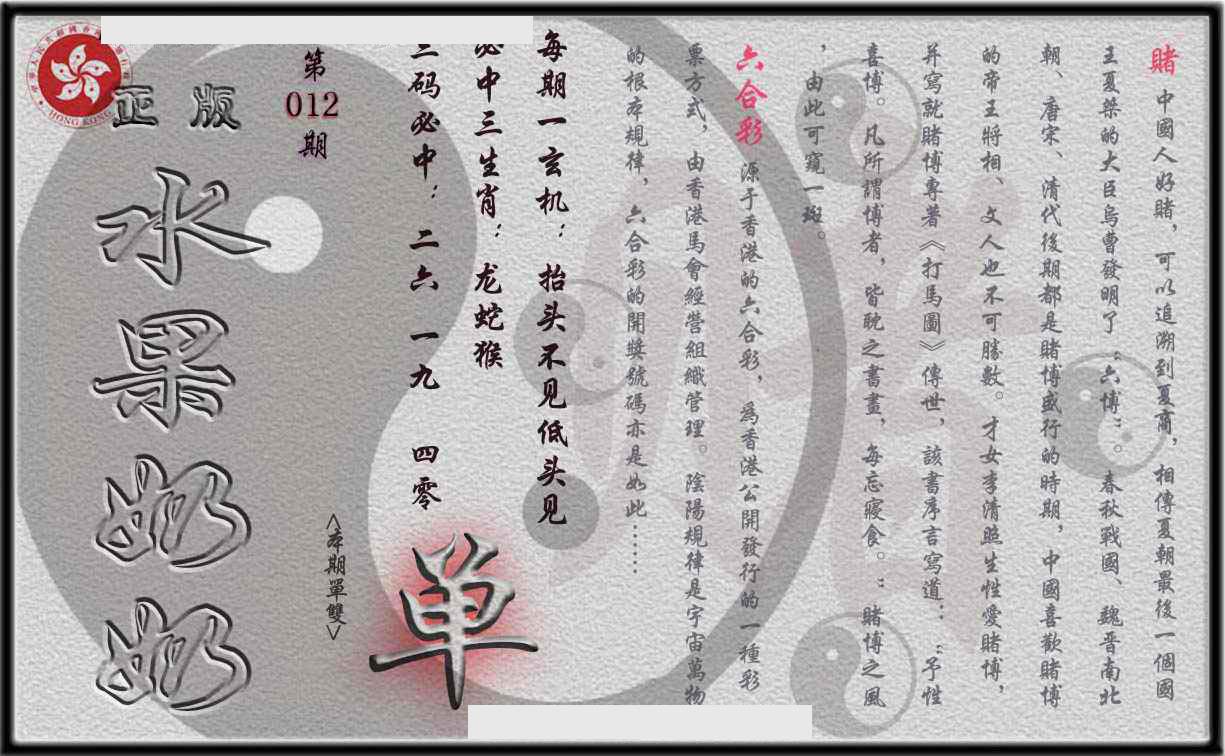 賭 中國人好賭，可以追溯到夏商，相傳夏朝最後一個國
王夏桀的大臣烏曹發明了“六博”。春秋戰國、魏晋南北
朝、唐宋、清代後期都是賭博盛行的時期，中國喜歡賭博
的帝王將相、文人也不可勝數。才女李清照生性愛賭博，
并寫就賭博專著《打馬圖》傳世，該書序言寫道：“予性
喜博。凡所謂博者，皆耽之書畫，每忘寢食。”賭博之風
，由此可窺一斑。
六合彩 源于香港的六合彩，為香港公開發行的一種彩
票方式，由香港馬會經營組織管理。陰陽規律是宇宙萬物
的根本規律，六合彩的開獎號碼亦是如此……
每期一玄机：抬头不见低头见
必中三生肖：龙蛇猴
三码必中：二六 一九 四零
單
<本期單雙>
第
012
期
正版
水果奶奶
HONG KONG